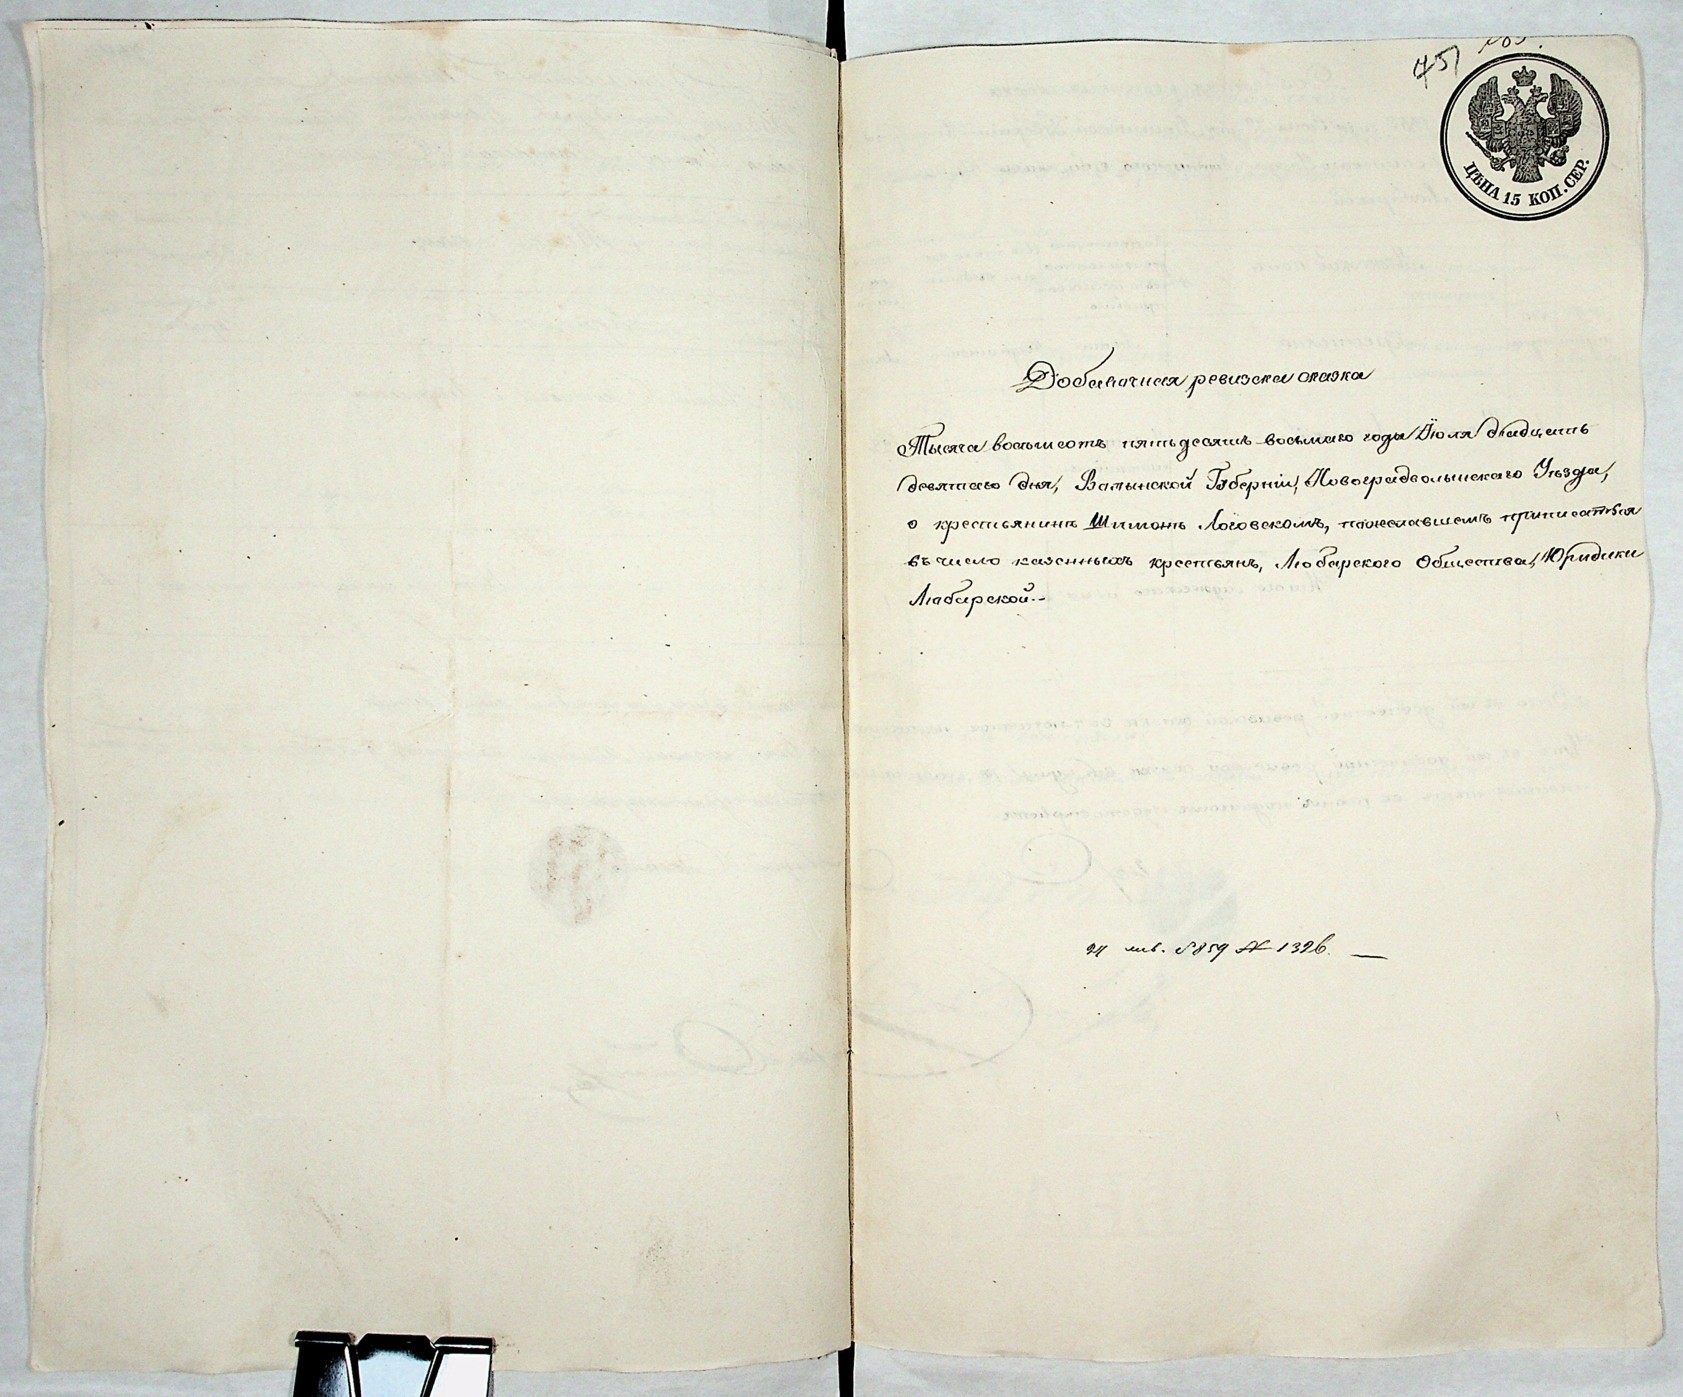 751
ЦѢНА 15 КОП. СЕР.
Добавочная ревизска сказка
Тысяча восьмсотъ пятьдесятъ восьмаго года Іюля двадцать
девятаго дня, Валынской Губерніи, Новоградволынскаго Уѣзда,
о крестьянинѣ Шимонѣ Логовскомъ, пожелавшемъ приписаться
въ число казенныхъ крестьянъ, Любарского Общества, Юридики
Любарской.-
1859 № 1326. —